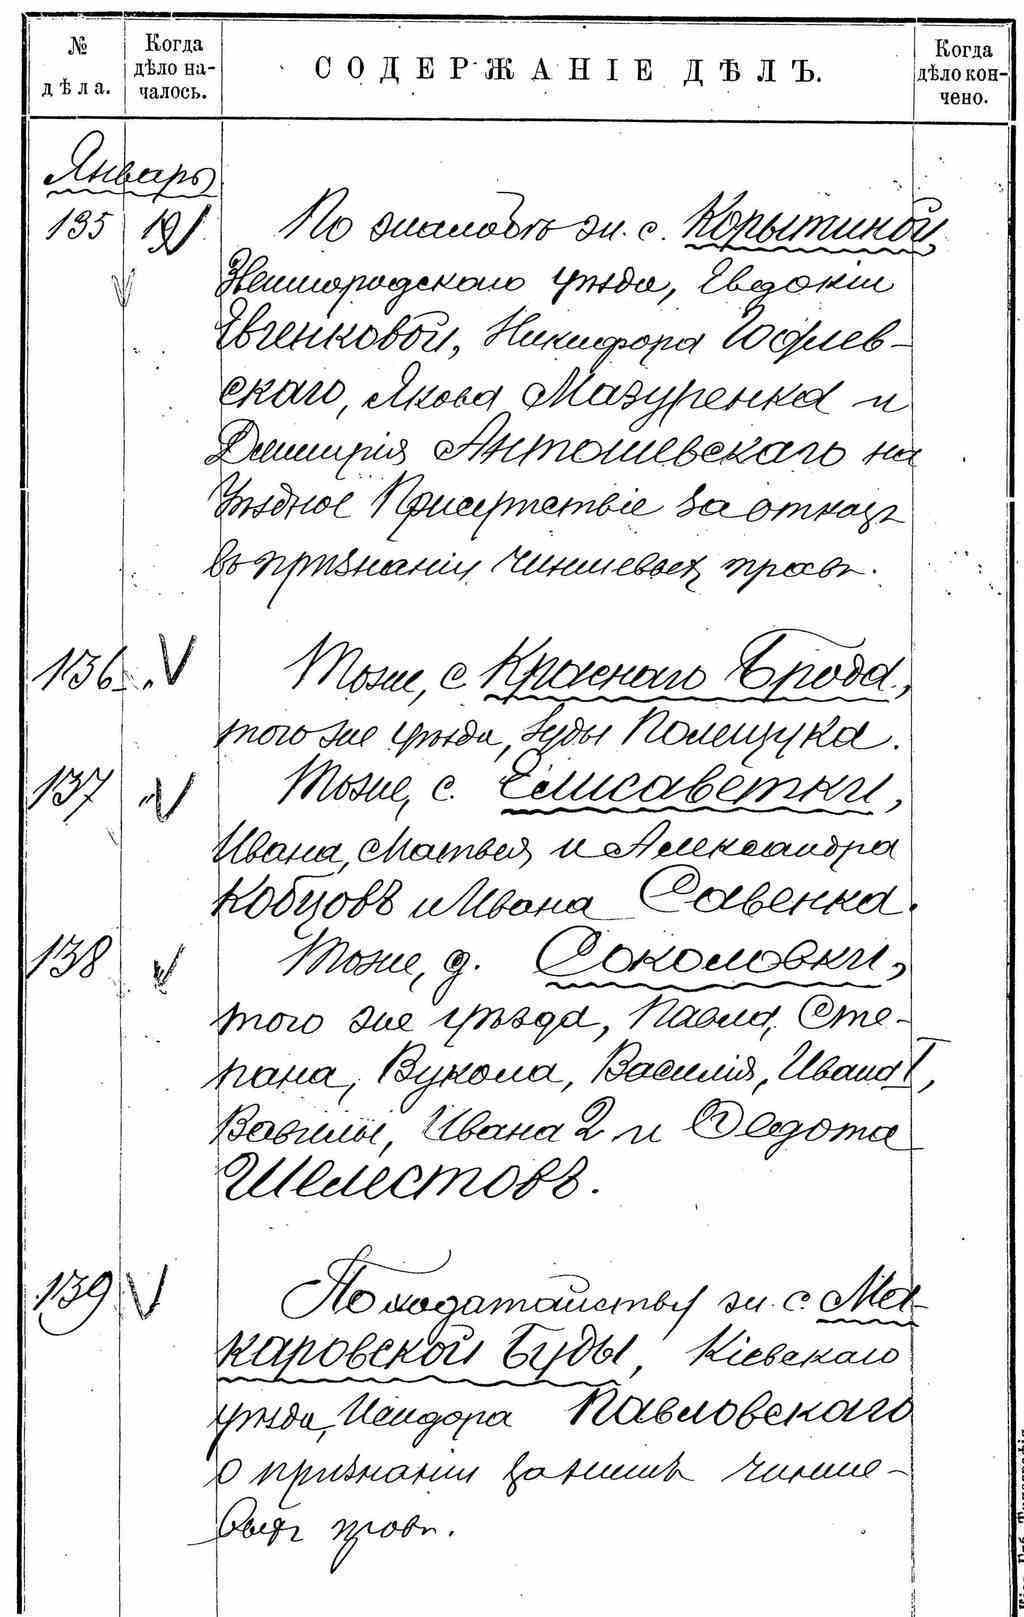 № дѣла.
Когда дѣло на-
чалось.
СОДЕРЖАНІЕ ДѢЛЪ.
Когда дѣло кон-
чено.
Январь
135 19/
По жалобѣ жи. с. Корытиной,
Звенигородскаго уѣзда, Евдокіи
Евгенковой, Никифора Гофлев-
скаго, Якова Мазуренка и
Димитрія Антошевскаго на
Уѣздное Присутствіе за отказъ
въ признаніи чиншевыхъ правъ.
136 „
Тоже, с. Краснаго Брода,
того же уѣзда, Іуды Полещука.
137 „
Тоже, с. Елисаветки,
Ивана, Матвея и Александра
Кобцовъ и Ивана Савенка.
138 „
Тоже, д. Соколовки,
того же уѣзда, Павла, Сте-
пана, Вукола, Василія, Ивана I,
Вавилы, Ивана 2 и Федота
Шелестовъ.
139
По ходатайству жи. с. Ма-
каровской Буды, Кіевскаго
уѣзда, Исидора Павловскаго
о признаніи за нимъ чинше-
выхъ правъ.